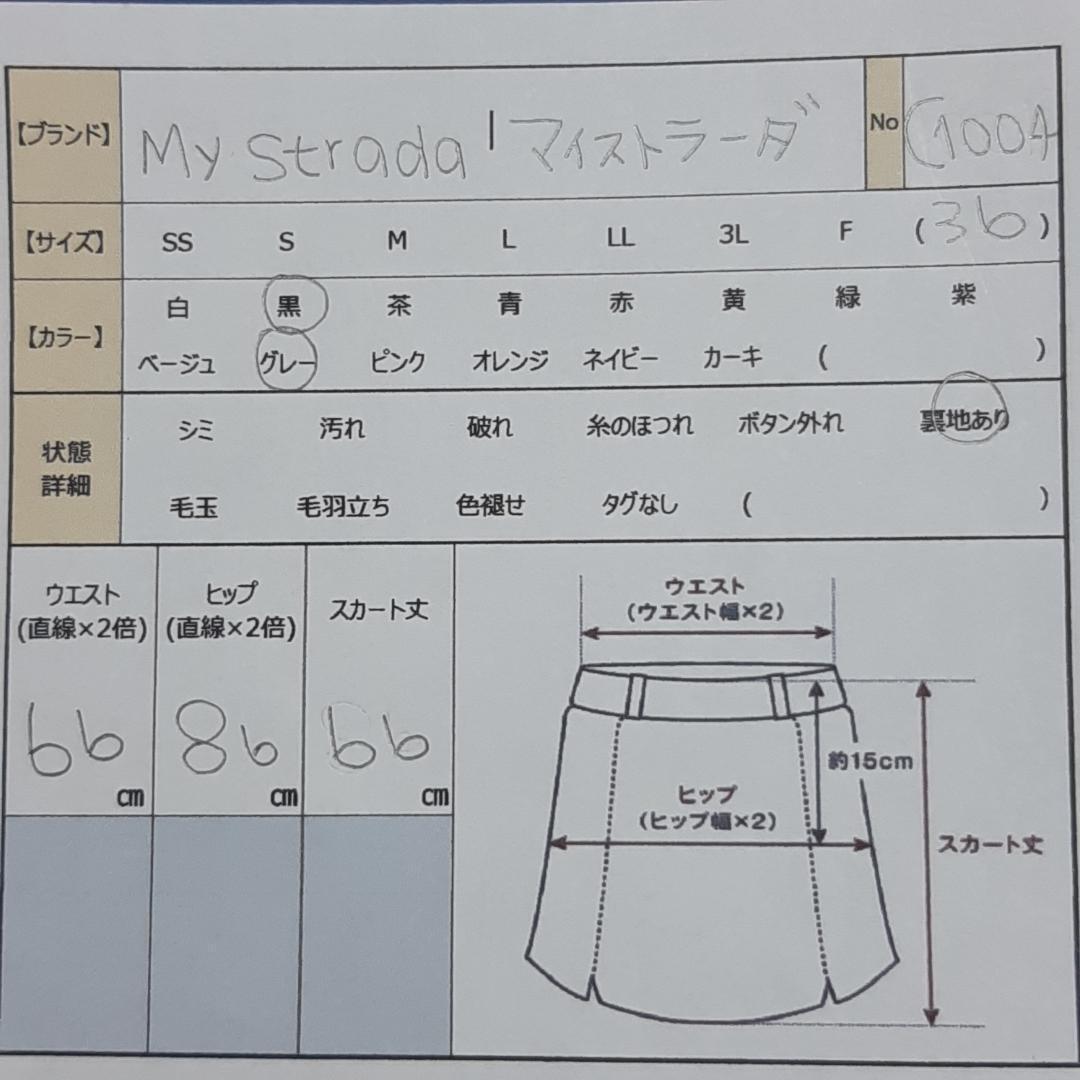 【ブランド】 My Strada | マイストラーダ No (1004
【サイズ】 SS S M L LL 3L F (36)
【カラー】 白 黒 茶 青 赤 黄 緑 紫
ベージュ グレー ピンク オレンジ ネイビー カーキ ( )
状態
詳細
シミ 汚れ 破れ 糸のほつれ ボタン外れ 裏地あり
毛玉 毛羽立ち 色褪せ タグなし ( )
ウエスト
(直線×2倍)
66
cm
ヒップ
(直線×2倍)
86
cm
スカート丈
66
cm
ウエスト
(ウエスト幅×2)
約15cm
ヒップ
(ヒップ幅×2)
スカート丈